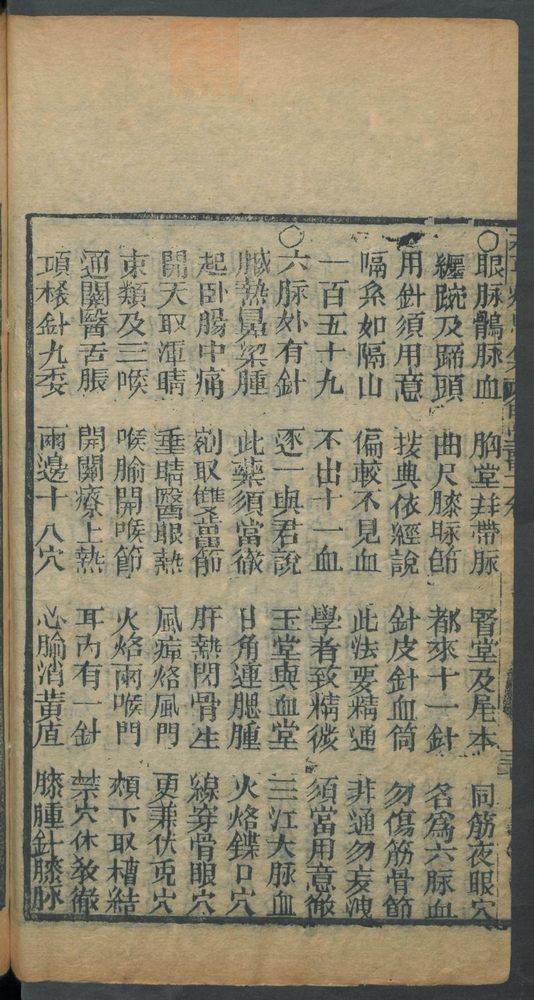 ○眼脉鶻脉血　胸堂并帶脉　腎堂及尾本　同筋夜眼穴
纏踠及蹄頭　曲尺膝脉節　都來十一針　名爲六脉血
用針須用意　拔典依經說　針皮針血筒　勿傷筋骨節
嗝系如隔山　偏較不見血　此法要精通　非通勿妄洩
一百五十九　不出十一血　學者致精微　須當用意徹
○六脉外有針　逐一與君說　玉堂與血堂　三江大脉血
臟熱鼻梁腫　此藥須當徹　日角連腮腫　火烙鏁口穴
起卧腸中痛　剜取雙鳧節　肝熱閃骨生　線穿骨眼穴
開天取渾睛　垂睛醫眼熱　風痽烙風門　更兼伏兎穴
束顙及三喉　喉腧開喉節　火烙兩喉門　頰下取槽結
通關醫舌脹　開關療上熱　耳內有一針　禁穴休教徹
項𣗳針九委　兩邊十八穴　心腧消黃直　膝腫針膝脉